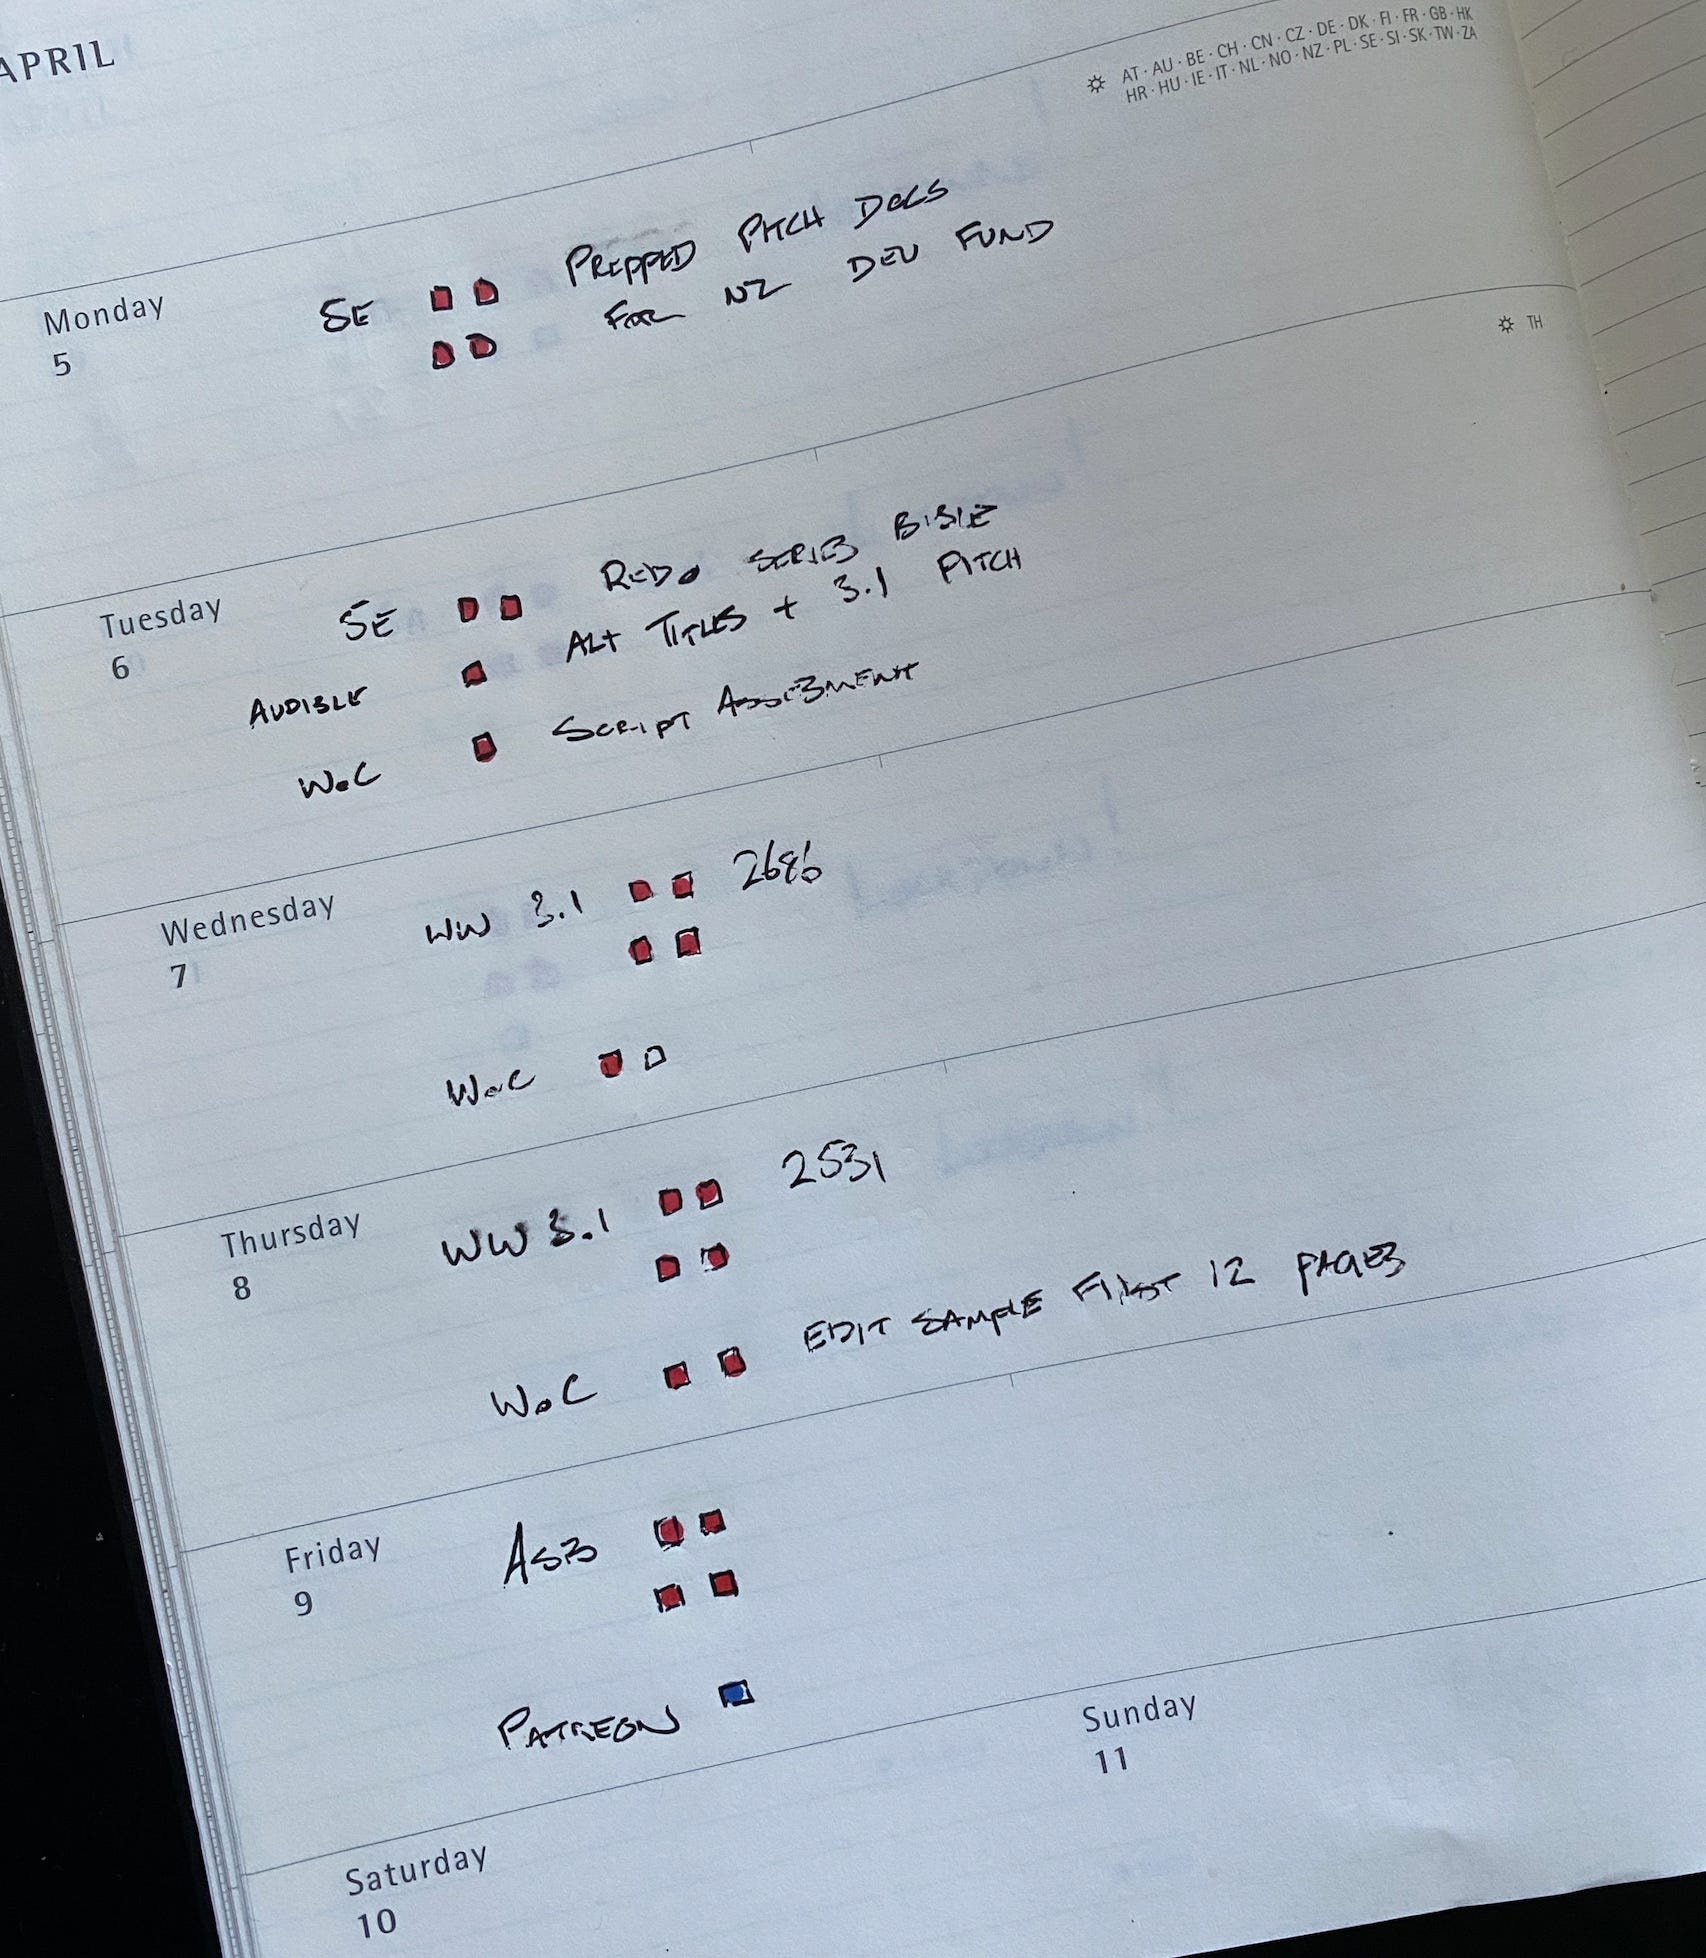 APRIL
AT · AU · BE · CH · CN · CZ · DE · DK · FI · FR · GB · HK
HR · HU · IE · IT · NL · NO · NZ · PL · SE · SI · SK · TW · ZA
Monday
5
SE PREPPED PITCH DOCS
FOR NZ DEV FUND
TH
Tuesday
6
SE REDO SERIES BIBLE
AUDIBLE ALT TITLES + 3.1 PITCH
WoC SCRIPT ASSESSMENT
Wednesday
7
WW 3.1 2686
WoC
Thursday
8
WW 3.1 2531
WoC EDIT SAMPLE FIRST 12 PAGES
Friday
9
ASB
PATREON
Saturday
10
Sunday
11